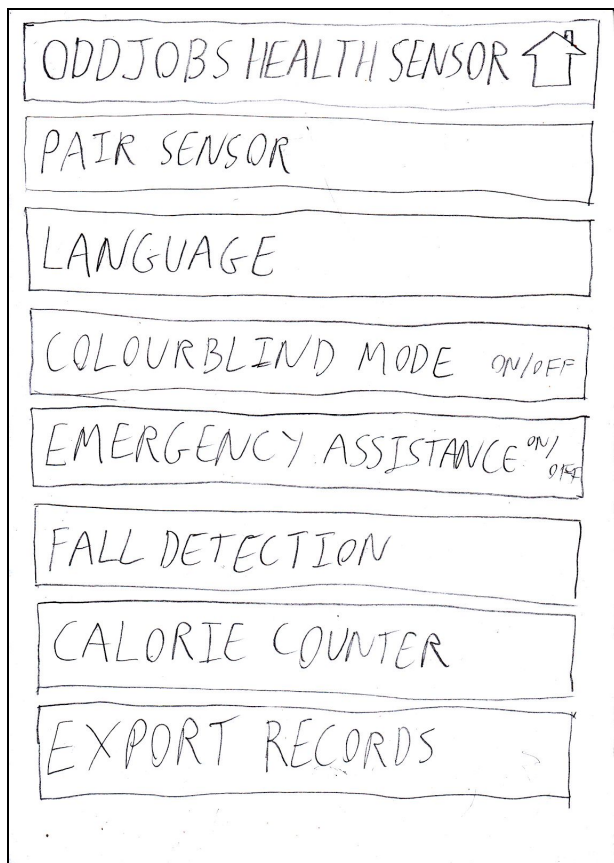 ODDJOBS HEALTH SENSOR
PAIR SENSOR
LANGUAGE
COLOURBLIND MODE ON/OFF
EMERGENCY ASSISTANCE ON/
OFF
FALL DETECTION
CALORIE COUNTER
EXPORT RECORDS